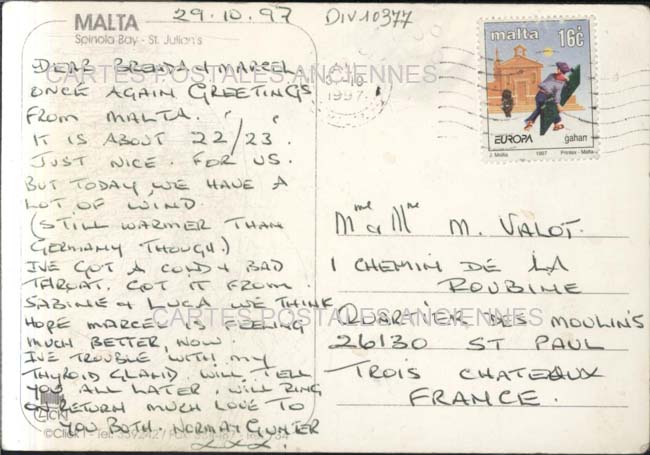 29.10.97
DIV10377
MALTA
Spinola Bay - St. Julian's
DEAR BRENDA + MARCEL
ONCE AGAIN GREETINGS
FROM MALTA.
IT IS ABOUT 22/23.
JUST NICE. FOR US.
BUT TODAY WE HAVE A
LOT OF WIND
(STILL WARMER THAN
GERMANY THOUGH.)
IVE GOT A COLD + BAD
THROAT. GOT IT FROM
SABINE + LUCA WE THINK
HOPE MARCEL IS FEELING
MUCH BETTER, NOW.
IVE TROUBLE WITH MY
THYROID GLAND WILL TELL
YOU ALL LATER, WILL RING
ON RETURN MUCH LOVE TO
YOU BOTH. NORMA + GUNTER
XXX
CARTES POSTALES ANCIENNES
CARTES POSTALES ANCIENNES
1997
malta 16c
EUROPA
gahan
J. Mallia 1997 Printex - Malta
Mme & Mr M. VALOT.
1 CHEMIN DE LA
ROUBINE
QUARTIER DES MOULINS
26130 ST PAUL
TROIS CHATEAUX
FRANCE.
©Click! - Tel: